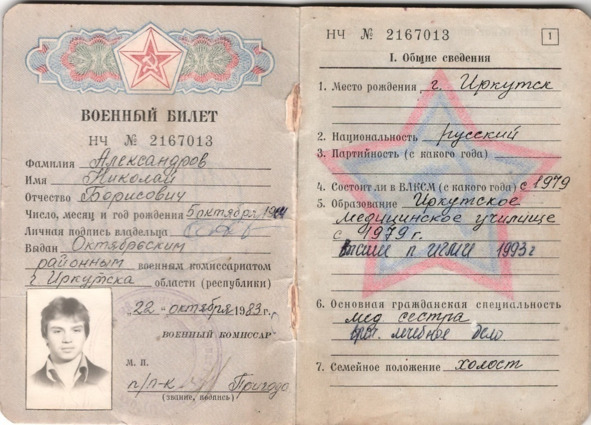 ВОЕННЫЙ БИЛЕТ
НЧ № 2167013
Фамилия Александров
Имя Николай
Отчество Борисович
Число, месяц и год рождения 5 октября
Личная подпись владельца
Выдан Октябрьским
районным военным комиссариатом
г. Иркутска области (республики)
22 октября 1983 г.
ВОЕННЫЙ КОМИССАР
М. П.
п/п-к Пригодо
(звание, подпись)
НЧ № 2167013
1
I. Общие сведения
1. Место рождения г. Иркутск
2. Национальность русский
3. Партийность (с какого года)
4. Состоит ли в ВЛКСМ (с какого года) с 1979
5. Образование Иркутское
медицинское училище
с 1979 г.
1993 г
6. Основная гражданская специальность
мед сестра
врач. лечебное дело
7. Семейное положение холост